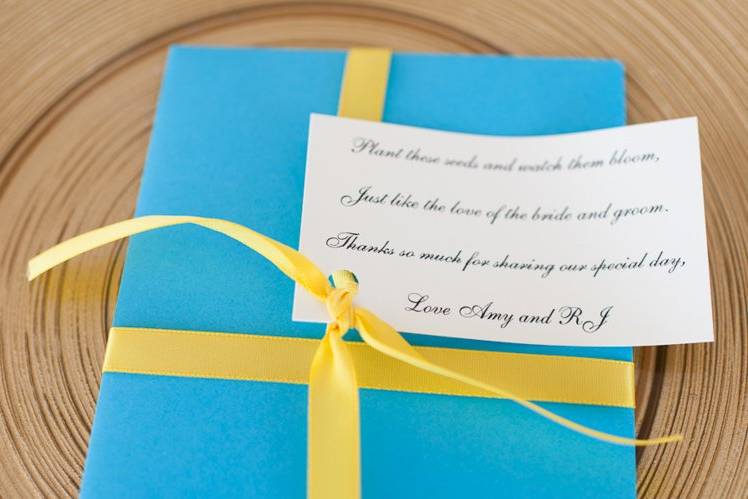 Plant these seeds and watch them bloom,
Just like the love of the bride and groom.
Thanks so much for sharing our special day,
Love Amy and RJ